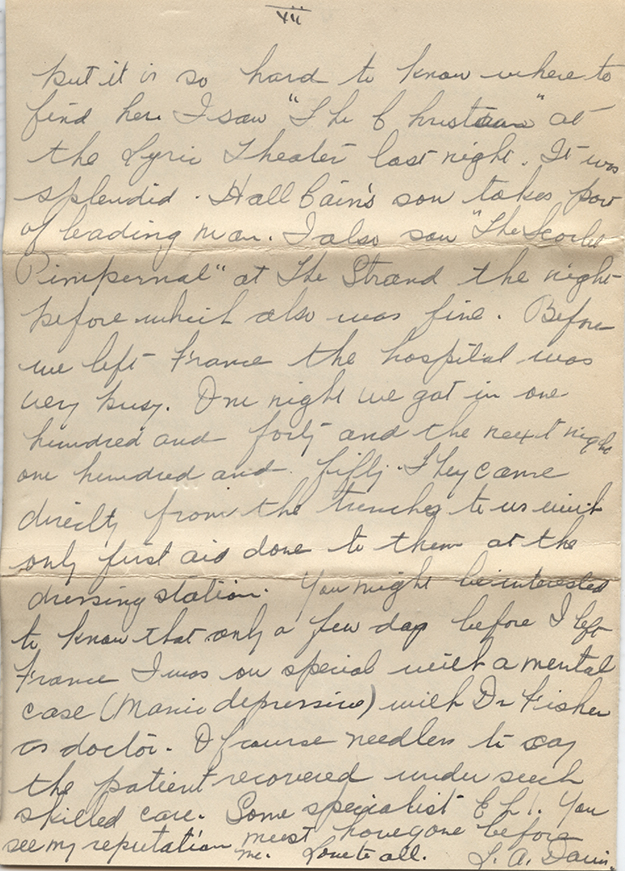 VII
but it is so hard to know where to
find her. I saw "The Christian" at
the Lyric Theater last night. It was
splendid. Hall Cain's son takes part
of leading man. I also saw "The Scarlet
Pimpernal" at The Strand the night
before which also was fine. Before
we left France the hospital was
very busy. One night we got in one
hundred and forty and the next night
one hundred and fifty. They came
directly from the trenches to us with
only first aid done to them at the
dressing station. You might be interested
to know that only a few days before I left
France I was on special with a mental
case (Manic depressive) with Dr Fisher
as doctor. Of course needless to say
the patient recovered under such
skilled care. Some specialist Eh!. You
see my reputation must have gone before
me. Love to all. L. A. Davis.